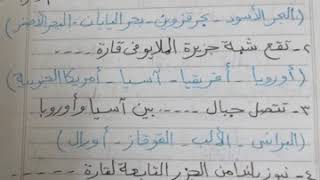 (البحر الأسود - بحر قزوين - بحر اليابان - البحر الأحمر)
٢- تقع شبة جزيرة الملايو فى قارة ....
(أوروبا - أفريقيا - آسيا - أمريكا الجنوبية)
٣- تتصل جبال ..... بين آسيا وأوروبا
(البرانس - الألب - القوقاز - أورال)
٤- نيوزيلندا من الجزر التابعة لقارة ....